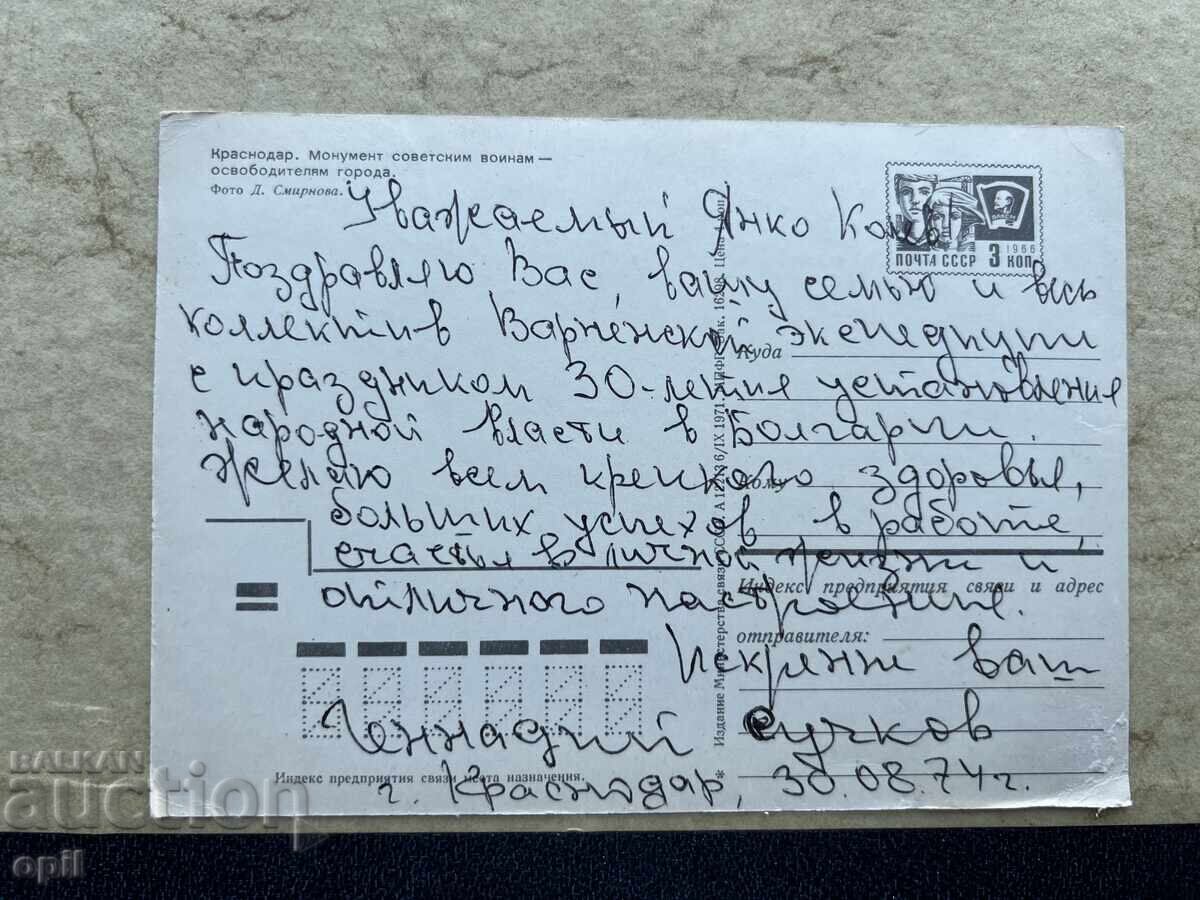 Краснодар. Монумент советским воинам —
освободителям города.
Фото Д. Смирнова.
ПОЧТА СССР 3 КОП
1966
ВЛКСМ
Уважаемый Янко Колев!
Поздравляю Вас, вашу семью и весь
коллектив Варненской экспедиции
с праздником 30-летия установления
народной власти в Болгарии.
Желаю всем крепкого здоровья,
больших успехов в работе,
счастья в личной жизни и
отличного настроения.
Искренне ваш
Геннадий Сучков
г. Краснодар, 30.08.74г.
Куда
Кому
Индекс предприятия связи и адрес
отправителя:
Индекс предприятия связи места назначения.
Издание Министерства связи СССР. 6/IX 1971.
BALKAN
auction
opil